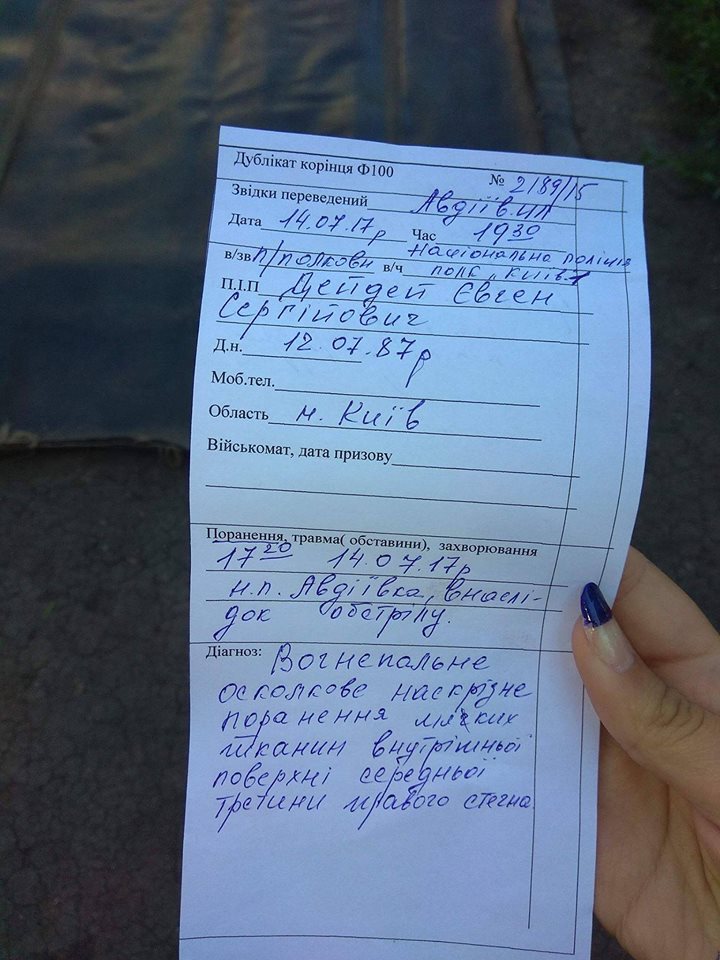 Дублікат корінця Ф100
№ 2189/15
Звідки переведений Авдіїв.
Дата 14.07.17р Час 19 30
Національна поліція
в/зв п/полковн в/ч полк "Київ-1
П.І.П Дейдей Євген
Сергійович
Д.н. 12.07.87р
Моб.тел.
Область м. Київ
Військомат, дата призову
Поранення, травма( обставини), захворювання
17 20 14.07.17р
н.п. Авдіївка, внаслі-
док обстрілу.
Діагноз: Вогнепальне
осколкове наскрізне
поранення мягких
тканин внутрішньої
поверхні середньої
третини правого стегна